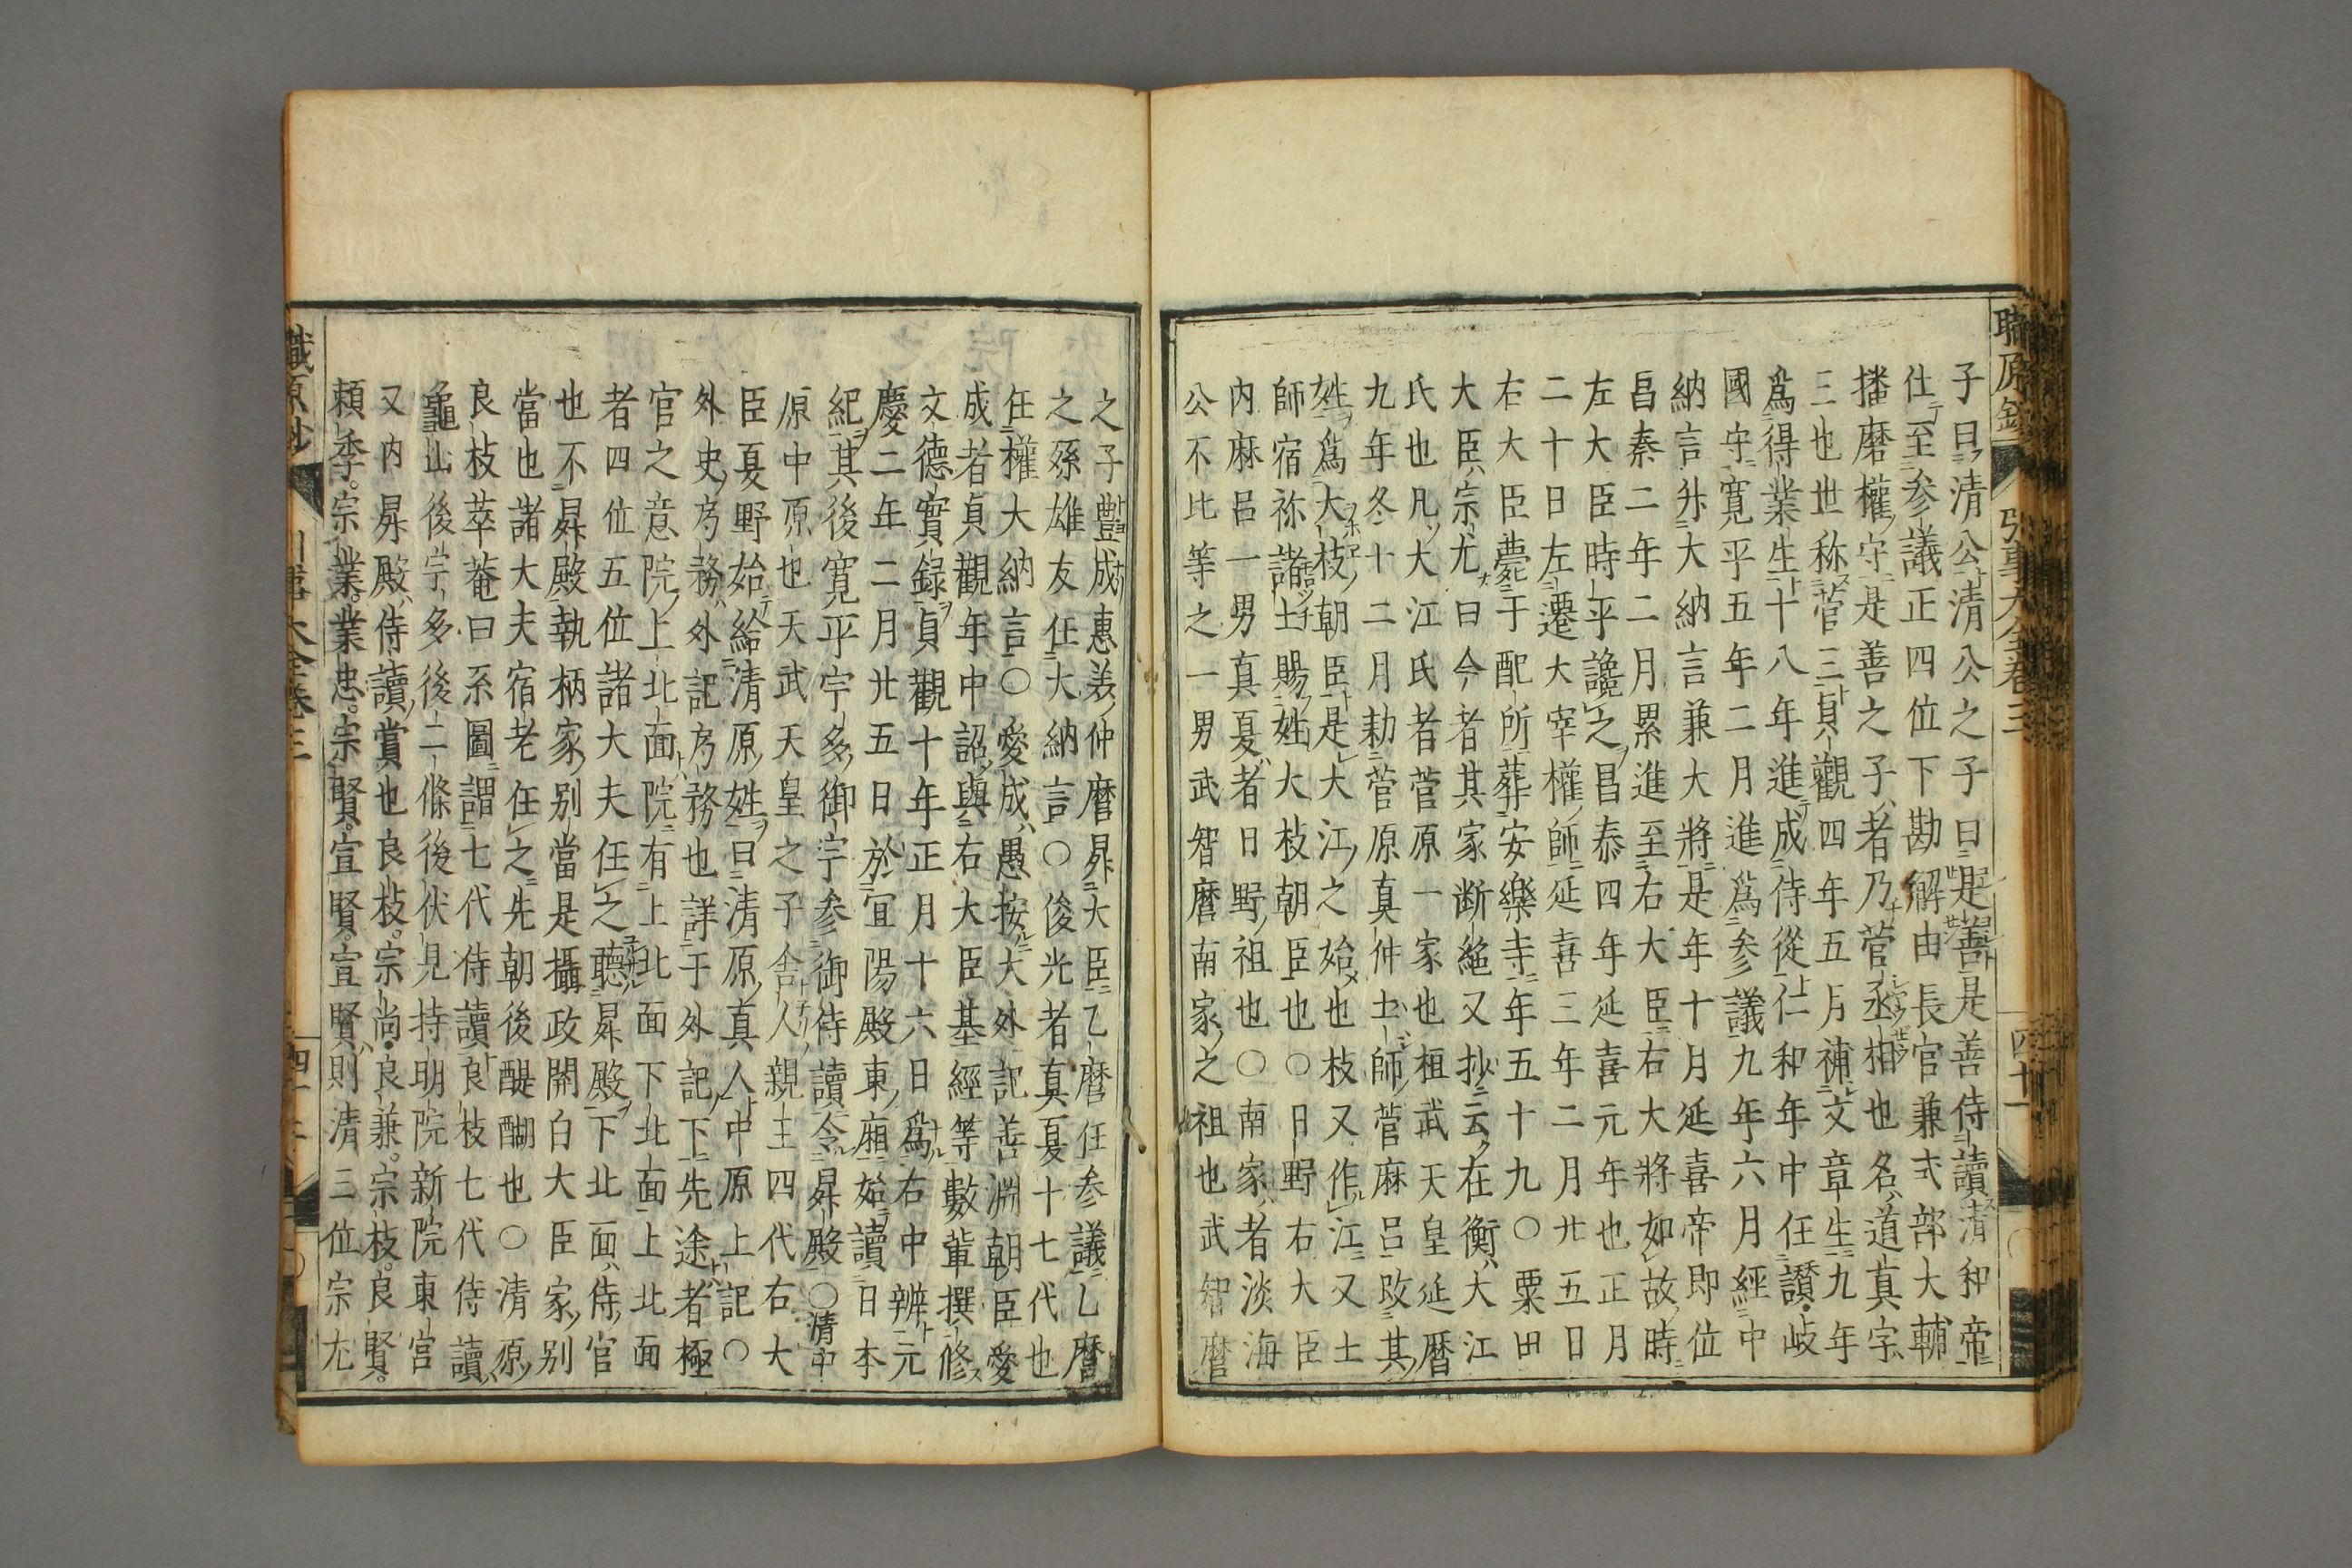 職原鈔 引事大全卷三 四十一
子曰清公清公之子曰是善是善侍讀清和帝
仕至参議正四位下勘解由長官兼式部大輔
播磨權守是善之子者乃菅丞相也名道真字
三也世称菅三貞觀四年五月補文章生九年
爲得業生十八年進成侍從仁和年中任讃岐
國守寛平五年二月進爲参議九年六月經中
納言升大納言兼大將是年十月延喜帝即位
昌泰二年二月累進至右大臣右大將如故時
左大臣時平讒之昌泰四年延喜元年也正月
二十日左遷大宰權師延喜三年二月廿五日
右大臣薨于配所葬安樂寺年五十九〇粟田
大臣宗尤曰今者其家断絶又抄云在衡大江
氏也凡大江氏者菅原一家也桓武天皇延暦
九年冬十二月勅菅原真仲土師菅麻呂改其
姓爲大枝朝臣是大江之始也枝又作江又土
師宿祢諸士賜姓大枝朝臣也〇日野右大臣
内麻呂一男真夏者日野祖也〇南家者淡海
公不比等之一男武智麿南家之祖也武智麿
之子豐成惠美仲麿昇大臣乙麿任参議乙麿
之孫雄友任大納言〇俊光者真夏十七代也
任權大納言〇愛成愚按大外記善淵朝臣愛
成者貞觀年中詔與右大臣基經等數輩撰修
文德實録貞觀十年正月十六日爲右中辨元
慶二年二月廿五日於宜陽殿東廂始讀日本
紀其後寛平宇多御宇参御侍讀令昇殿〇清中
原中原也天武天皇之子舎人親王四代右大
臣夏野始給清原姓曰清原真人中原上記〇
外史房務外記房務也詳于外記下先途者極
官之意院上北面院有上北面下北面上北面
者四位五位諸大夫任之聽昇殿下北面侍官
也不昇殿執柄家別當是攝政關白大臣家別
當也諸大夫宿老任之先朝後醍醐也〇清原
良枝萃菴曰系圖謂七代侍讀良枝七代侍讀
龜山後宇多後二條後伏見持明院新院東宮
又内昇殿侍讀賞也良枝宗尚良兼宗枝良賢
頼季宗業業忠宗賢宣賢宣賢則清三位宗尤
職原鈔 卷三